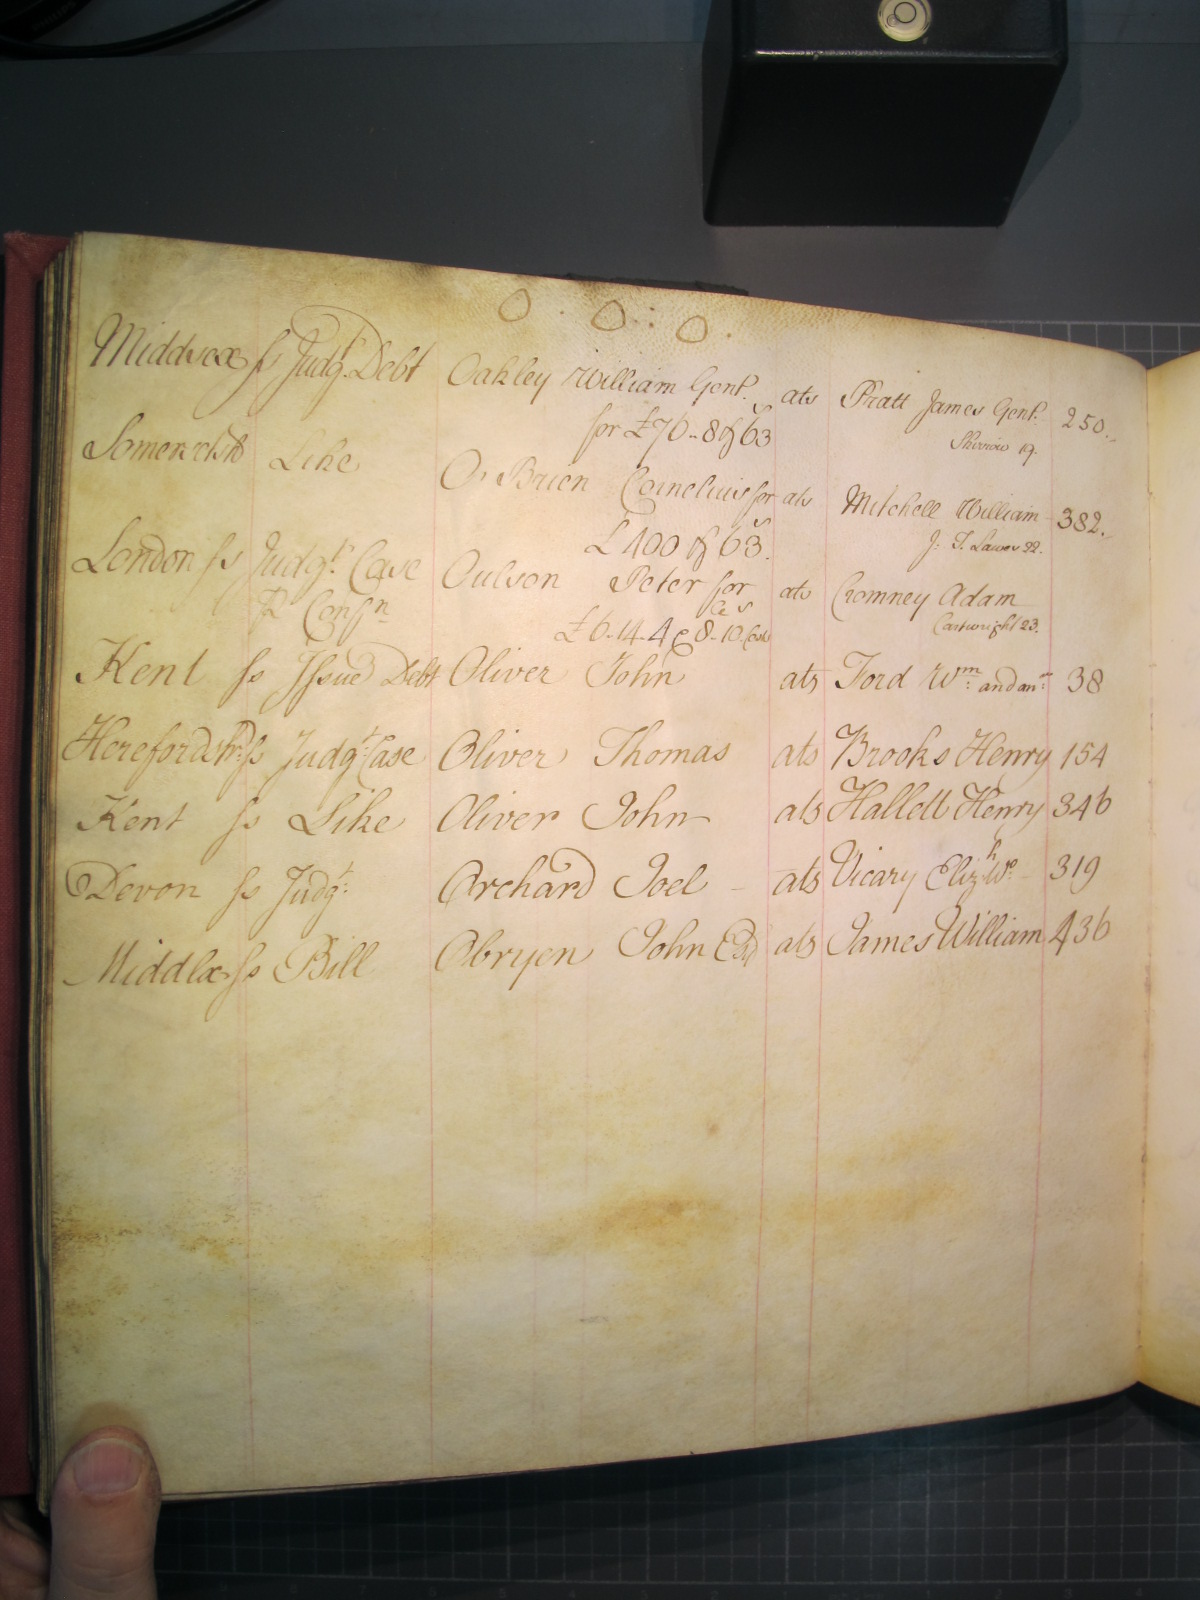 O . O . : O .
Middsex ss Judgt. Debt Oakley William Gent. ats Pratt James Gent. 250.
for £76-8 & 63s
Somersetsh Like O'Brien Cornelius for ats Mitchell William 382.
£400 & 63s. J. T. Lawes 22.
London ss Judgt. Case Oulson Peter for ats Cromney Adam
Confn £6-14-4 & 8-10 Costs Cartwright 23.
Kent ss Issue Debt Oliver John ats Ford Wm: and anr: 38
Herefordsh: ss Judgt: Case Oliver Thomas ats Brooks Henry 154
Kent ss Like Oliver John ats Hallett Henry 346
Devon ss Judgt: Orchard Joel - ats Vicary Elizh. 319
Middlx ss Bill Obryen John Esq ats James William 436